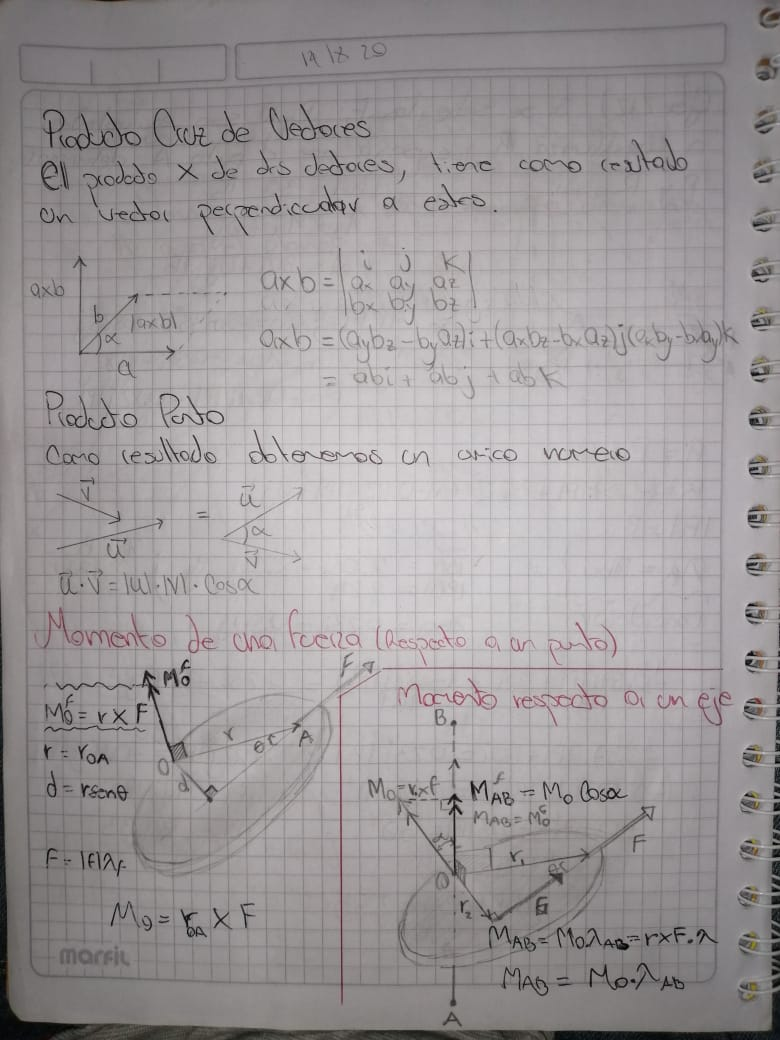 19/8/20
Producto Cruz de Vectores
El producto X de dos vectores, tiene como resultado
un vector perpendicular a estos.
axb
b
|axb|
α
a
axb = | i j k |
| ax ay az |
| bx by bz |
axb = (aybz - byaz)i + (axbz - bxaz)j (axby - bxay)k
= abi + abj + abk
Producto Punto
Como resultado obtenemos un unico numero
v⃗
u⃗
=
u⃗
α
v⃗
u⃗·v⃗ = |u|·|v|·Cosα
Momento de una fuerza (Respecto a un punto)
Mo^F
F
Mo^F = r x F
r
θ
A
r = rOA
O
d
d = rsenθ
F = |F|λF
Mo = rOA x F
Momento respecto a un eje
B
Mo = r x f
MAB^f = Mo Cosα
MAB = Mo^F
F
r1
θ
O
r2
F
MAB = Mo.λAB = r x F.λ
MAB = Mo.λAB
A
marfil